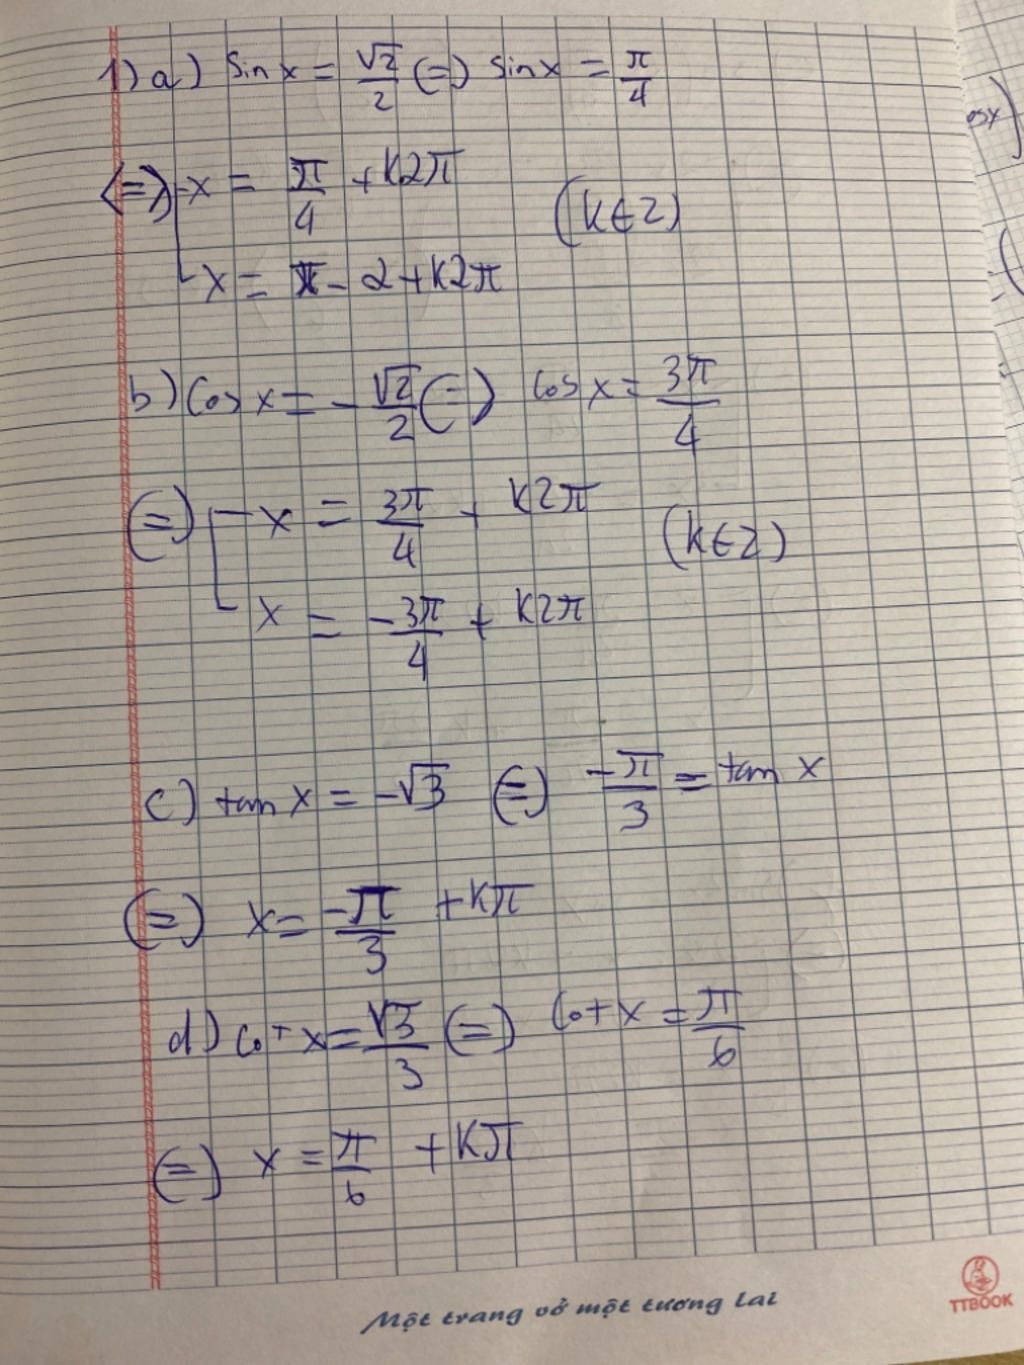 1) a) Sin x = √2/2 (=) sin x = π/4
<=> x = π/4 + k2π
(k∈Z)
x = π - 2 + k2π
b) Cos x = -√2/2 (=) cos x = 3π/4
(=) x = 3π/4 + k2π
(k∈Z)
x = -3π/4 + k2π
c) tan x = -√3 (=) -π/3 = tan x
(=) x = -π/3 + kπ
d) cot x = √3/3 (=) cot x = π/6
(=) x = π/6 + kπ
Một trang vở một tương lai
TTBOOK